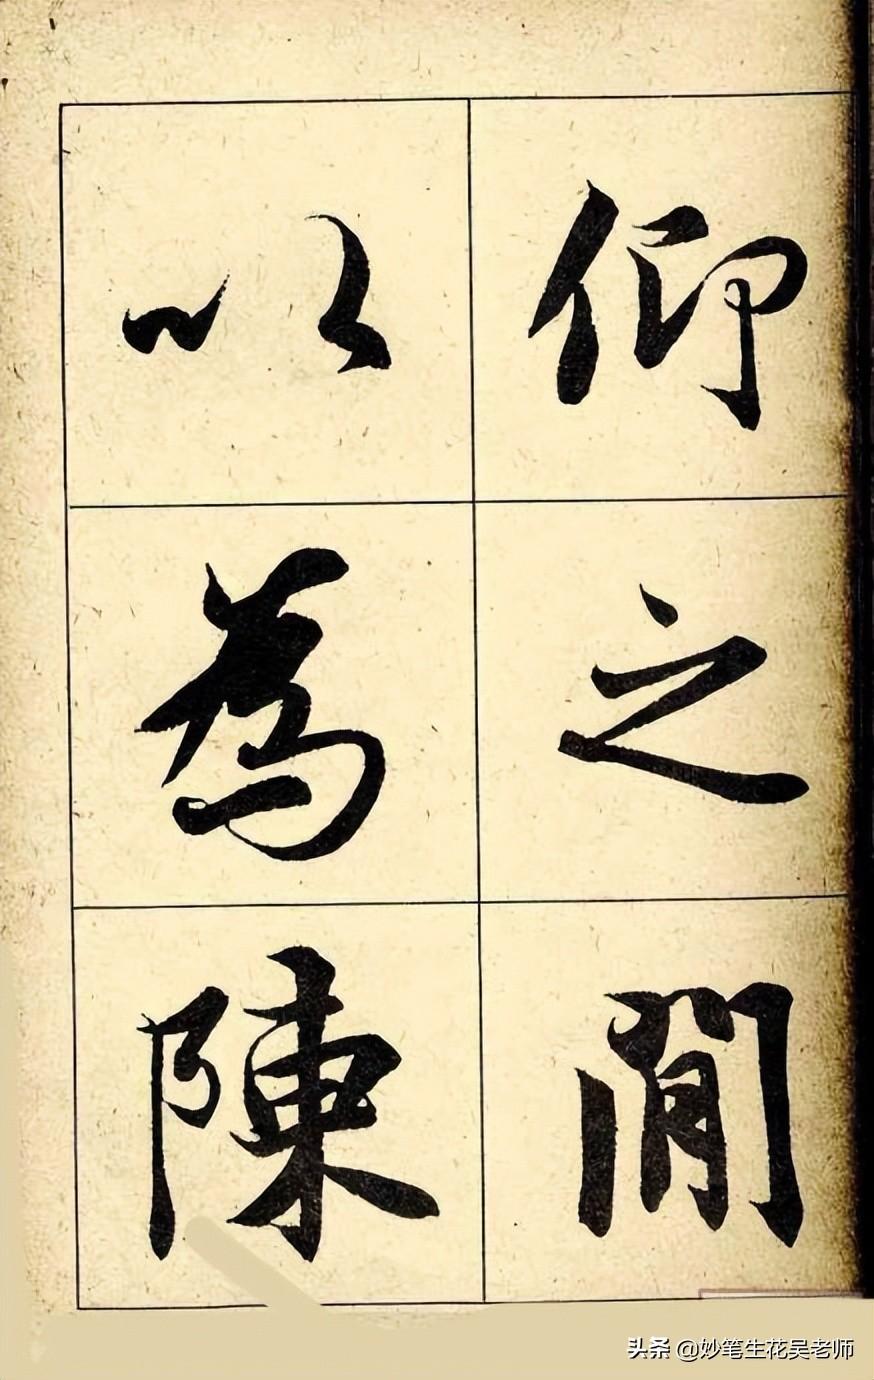 仰之閒
以為陳
头条 @妙笔生花吴老师